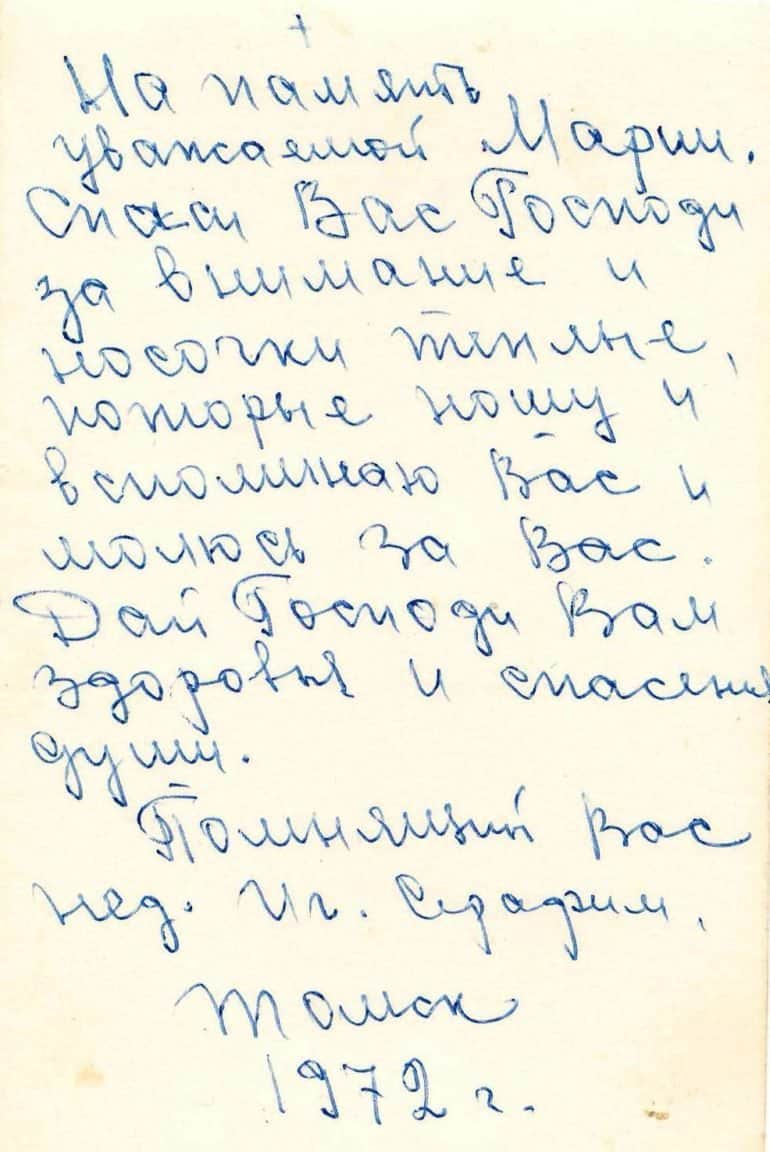 На память
уважаемой Марии.
Спаси Вас Господи
за внимание и
носочки теплые,
которые ношу и
вспоминаю Вас и
молюсь за Вас.
Дай Господи Вам
здоровья и спасения
души.
Помнящий Вас
нед. Иг. Серафим.
Томск
1972 г.